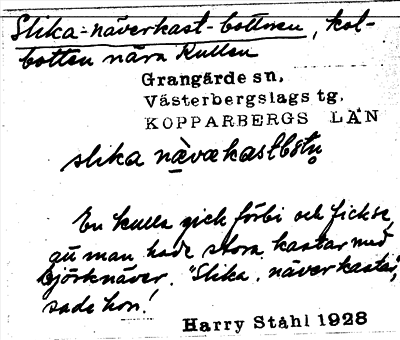 Slika-näverkast-bottnen, kol-
botten nära Kullen
Grangärde sn,
Västerbergslags tg.
KOPPARBERGS LÄN
slika
En kulla gick förbi och fick se
hade stora kastar med
björknäver. "Slika näverkastar",
sade hon!
Harry Ståhl 1928